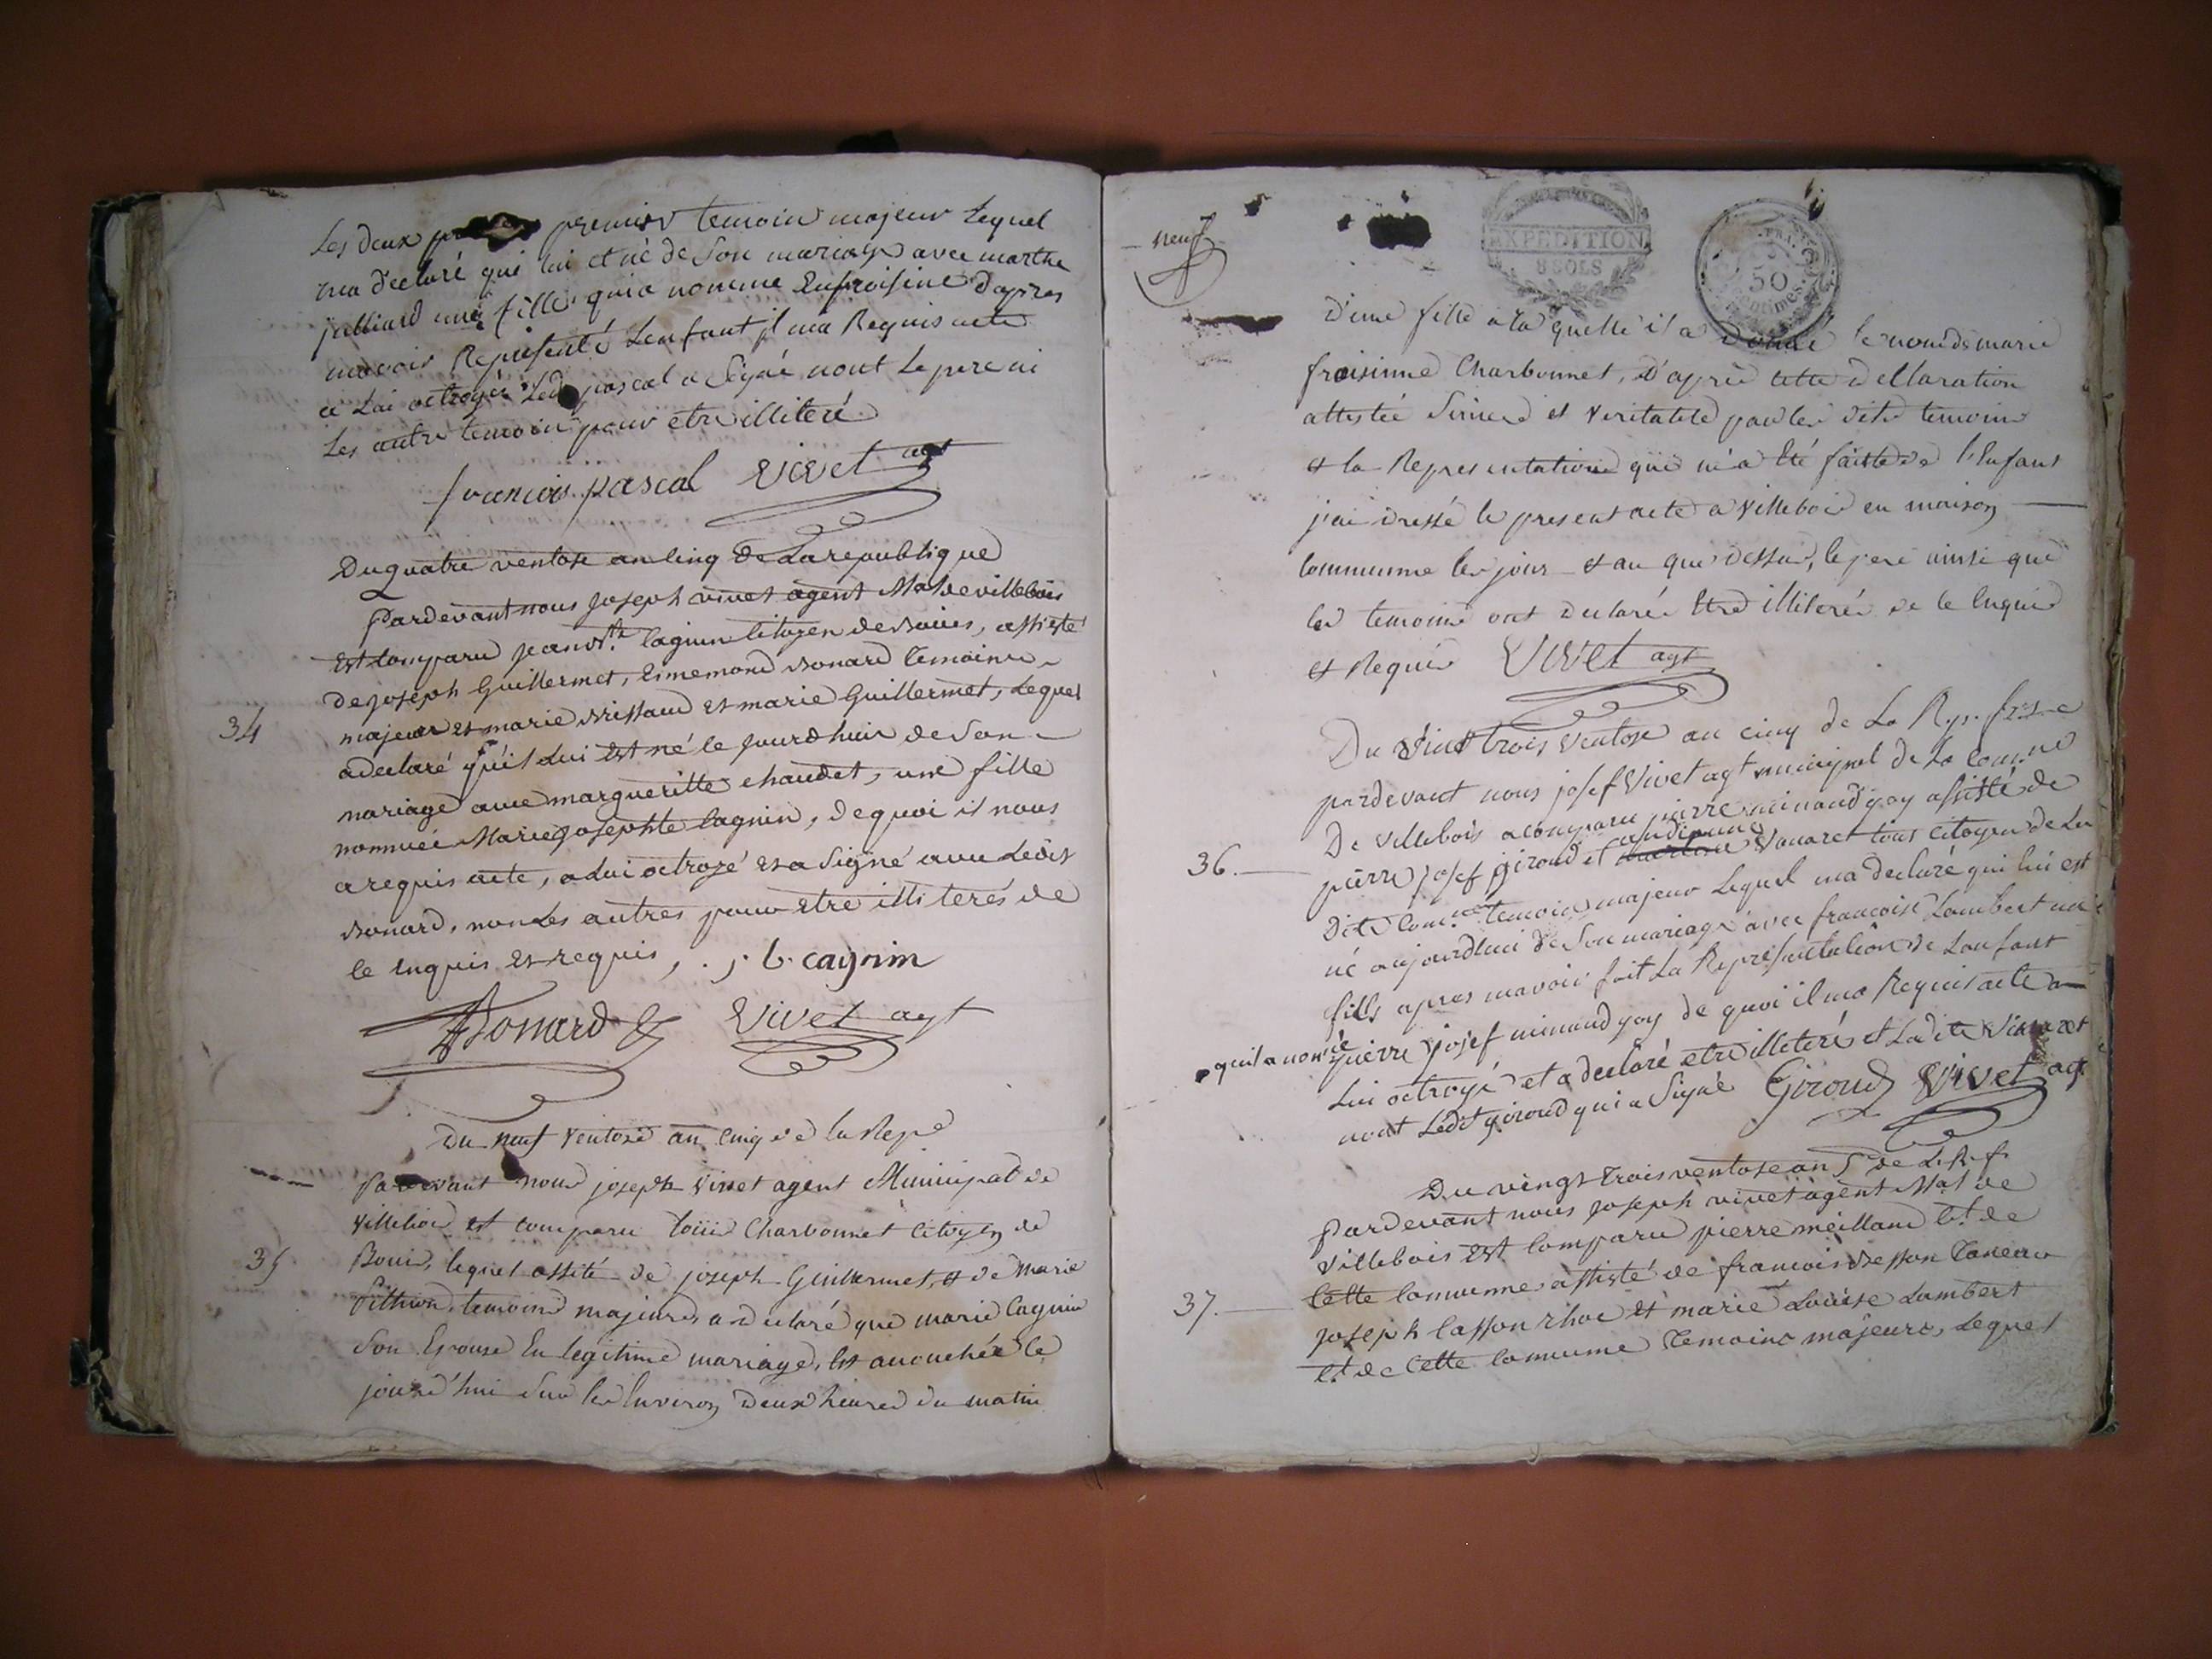 Les deux premier temoin majeur Lequel
ma declaré qui lui et né de Son mariage avec marthe
julliard une fille qui a nomme Eufroisine d'apres
mavoir Representé Lenfant jl ma Requis acte
a Lui octroyé Led pascal a Signé nont Le pere ni
Les autre temoin pour etre illiteré
francois pascal Vivet agt
Du quatre ventose an cinq de La republique
34
Pardevant nous joseph vivet agent M.al de villebois
Est comparu jean Bte. cagnin Citoyen de Bouis, assisté
de joseph Guillermet, Esmemond Bonard temoins
majeur et marie Brissaud et marie Guillermet, Lequel
a declaré qu'il Lui est né le jourdhuis de Son
mariage avec margueritte chaudet, une fille
nommée Marie josephte Cagnin, de quoi il nous
a requis acte, a Lui octroyé et a Signé avec Ledit
Bonard, non Les autres pour etre illiterés de
ce enquis et requis, j. b. cagnin
Bonard Vivet agt
Du neuf Ventose an cinq de la Repe
35
nous joseph Vivet agent Municipal de
Villebois est comparu Louis Charbonnet Citoyen de
Bouis, lequel assité de joseph Guillermet, et de Marie
temoins majeurs a declaré que marie Cagnin
Son Epouse En legitime mariage, Est accouchée ce
jourd'hui Sur les Environ Deux heures du matin
neuf
EXPEDITION
8 SOLS
50
centimes
D'une fille a la quelle il a donné le nom de marie
froisinne Charbonnet, D'après cette declaration
attestée Sincere et veritable par les dits temoins
et la Representation qui m'a été faitte de l'Enfant
j'ai dressé le present acte a Villebois en maison
Commune les jour et an que dessus, le pere ainsi que
les temoins ont declarés Etre illiterés de ce Enquis
et Requis Vivet agt
Du vint trois Ventose an cinq de La Rep. frse
pardevant nous josef Vivet agt municipal de La comne
De villebois a comparu pierre minaud goy assisté de
36.
pierre josef giroud et Vanaret tous citoyen de La
Dite comne temoins majeur Lequel ma declaré qui lui est
né aujourdhui de Son mariage avec francoise Lambert un
fills apres mavoir fait La Representation de Lenfant
quil a nomé pierre josef minaud goy de quoi il ma Requis acte a
Lui octroyé et a declaré etre illeteré et La dite Vanaret
nont Ledit giroud qui a Signé Giroud Vivet agt
Du vingt trois ventose an 5e de L. R. f.
Pardevant nous joseph vivet agent M.al de
villebois est comparu pierre meilland Ct. de
Cette commune assisté de francois Besson Caneau
37.
joseph Casson rhoc et marie Louise Lambert
Ct. de Cette commune temoins majeurs, Lequel